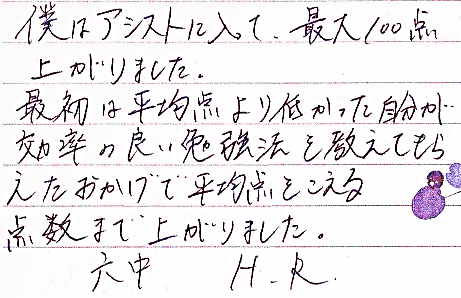 僕はアシストに入って、最大100点
上がりました。
最初は平均点より低かった自分が
効率の良い勉強法を教えてもら
えたおかげで平均点をこえる
点数まで上がりました。
六中 H.R.